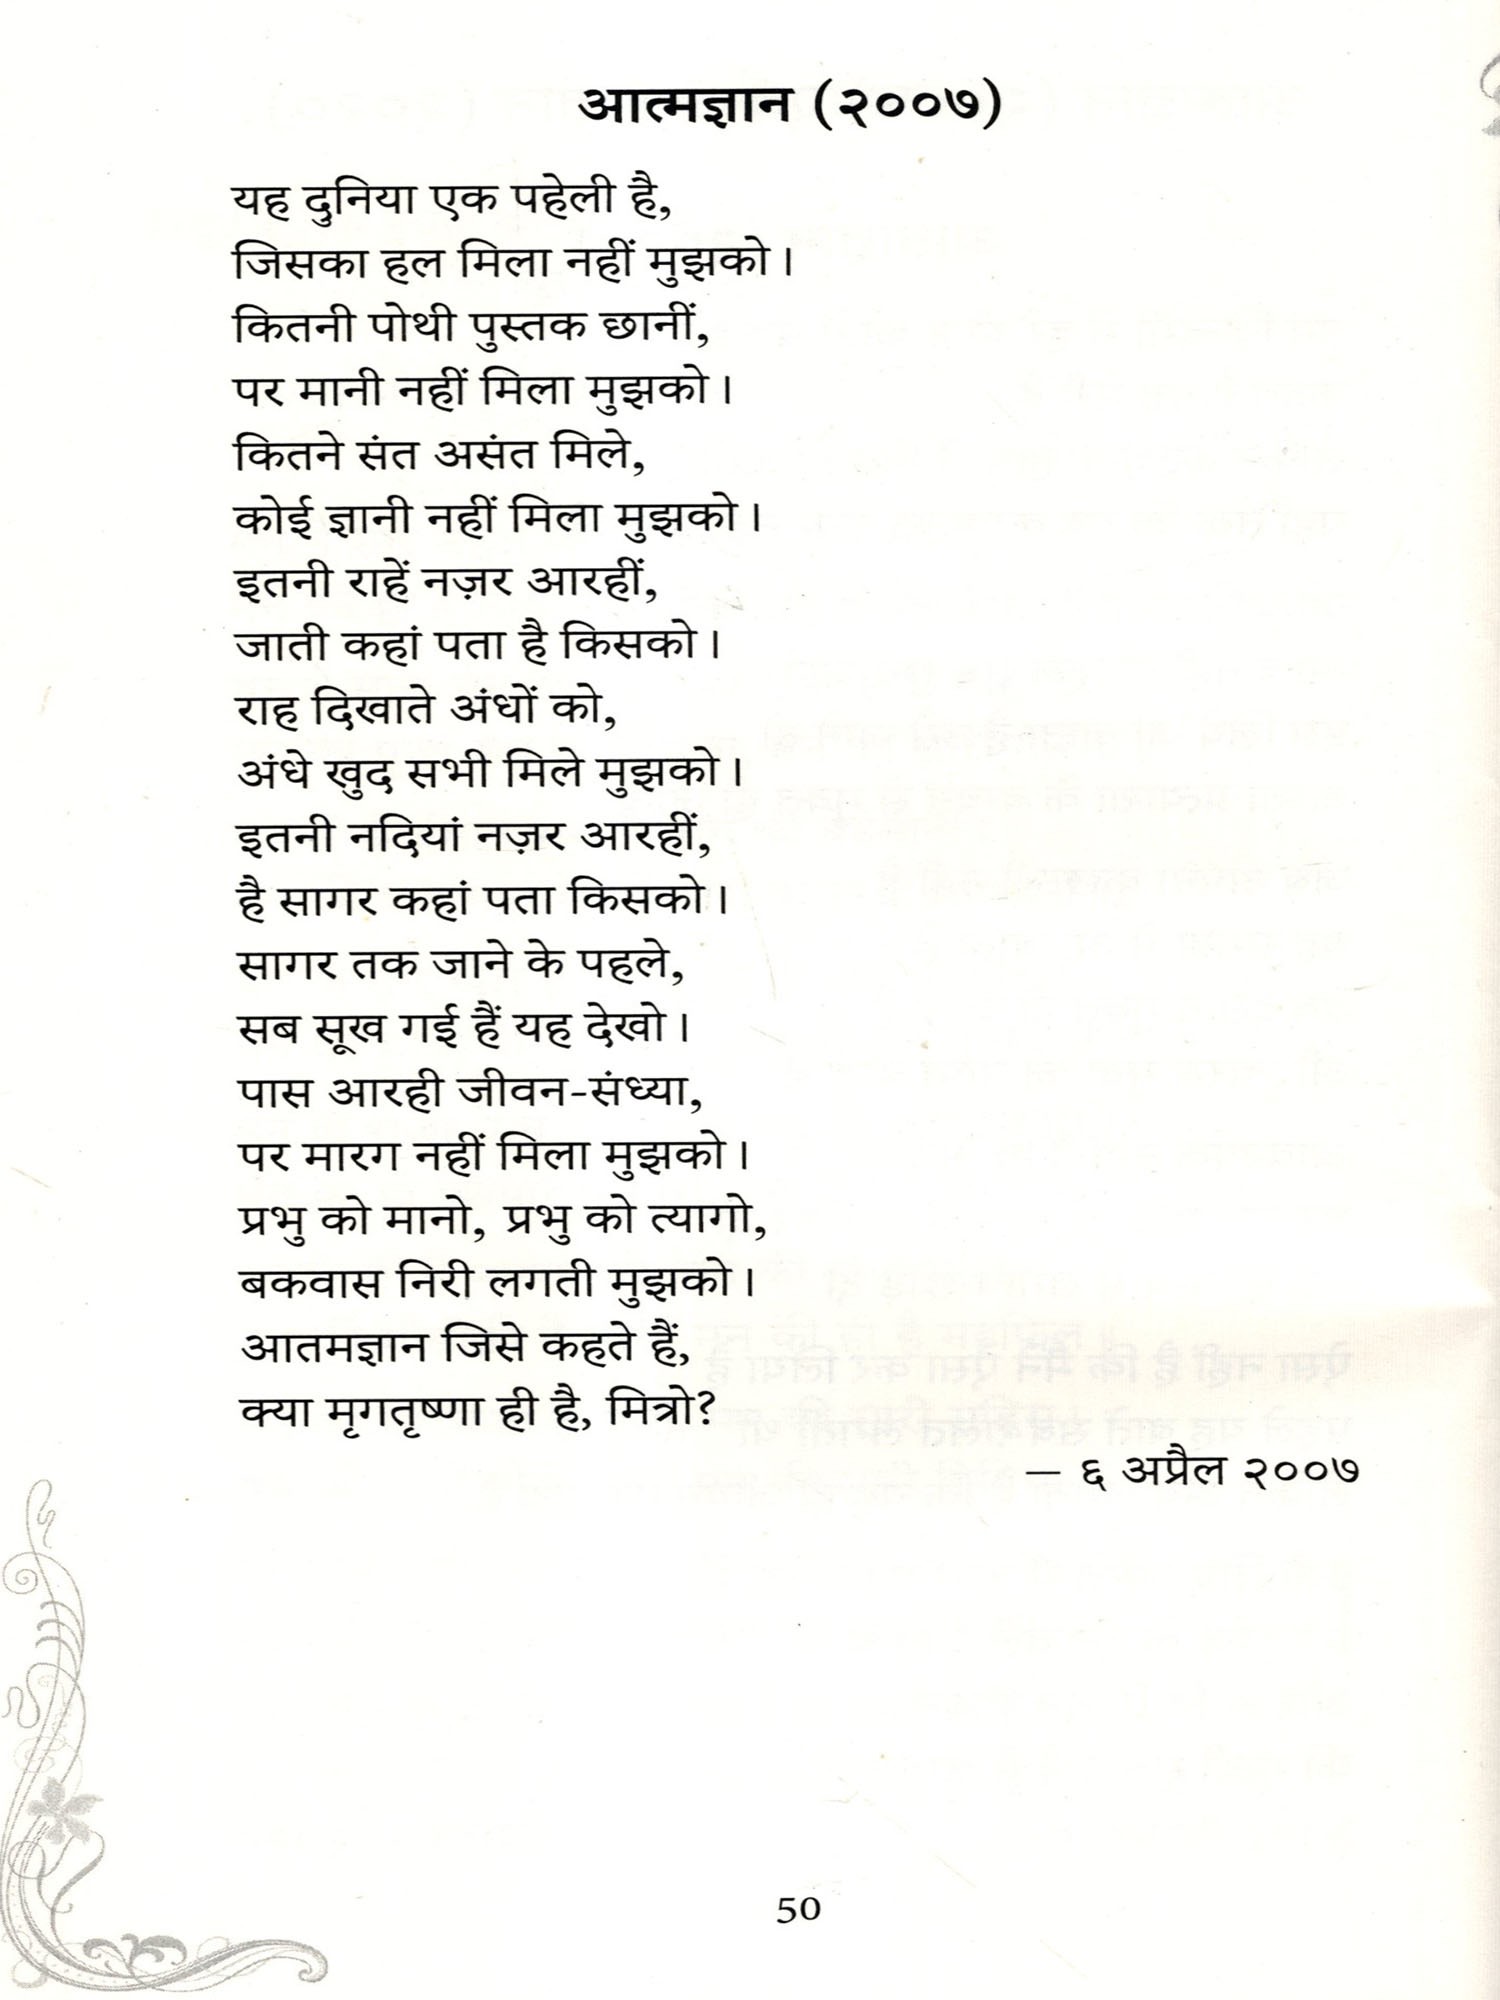 आत्मज्ञान (२००७)
यह दुनिया एक पहेली है,
जिसका हल मिला नहीं मुझको।
कितनी पोथी पुस्तक छानीं,
पर मानी नहीं मिला मुझको।
कितने संत असंत मिले,
कोई ज्ञानी नहीं मिला मुझको।
इतनी राहें नज़र आरहीं,
जाती कहां पता है किसको।
राह दिखाते अंधों को,
अंधे खुद सभी मिले मुझको।
इतनी नदियां नज़र आरहीं,
है सागर कहां पता किसको।
सागर तक जाने के पहले,
सब सूख गई हैं यह देखो।
पास आरही जीवन-संध्या,
पर मारग नहीं मिला मुझको।
प्रभु को मानो, प्रभु को त्यागो,
बकवास निरी लगती मुझको।
आतमज्ञान जिसे कहते हैं,
क्या मृगतृष्णा ही है, मित्रो?
– ६ अप्रैल २००७
50